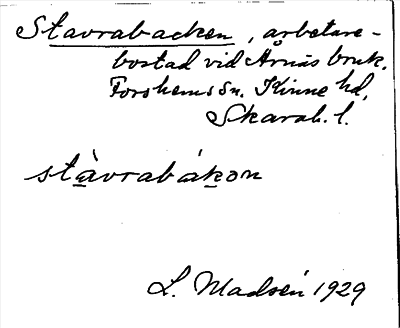 Stavrabacken, arbetare-
bostad vid Årnäs bruk.
Forshems sn. Kinne hd,
Skarab. l.
stàvrabákon
L. Madsén 1929